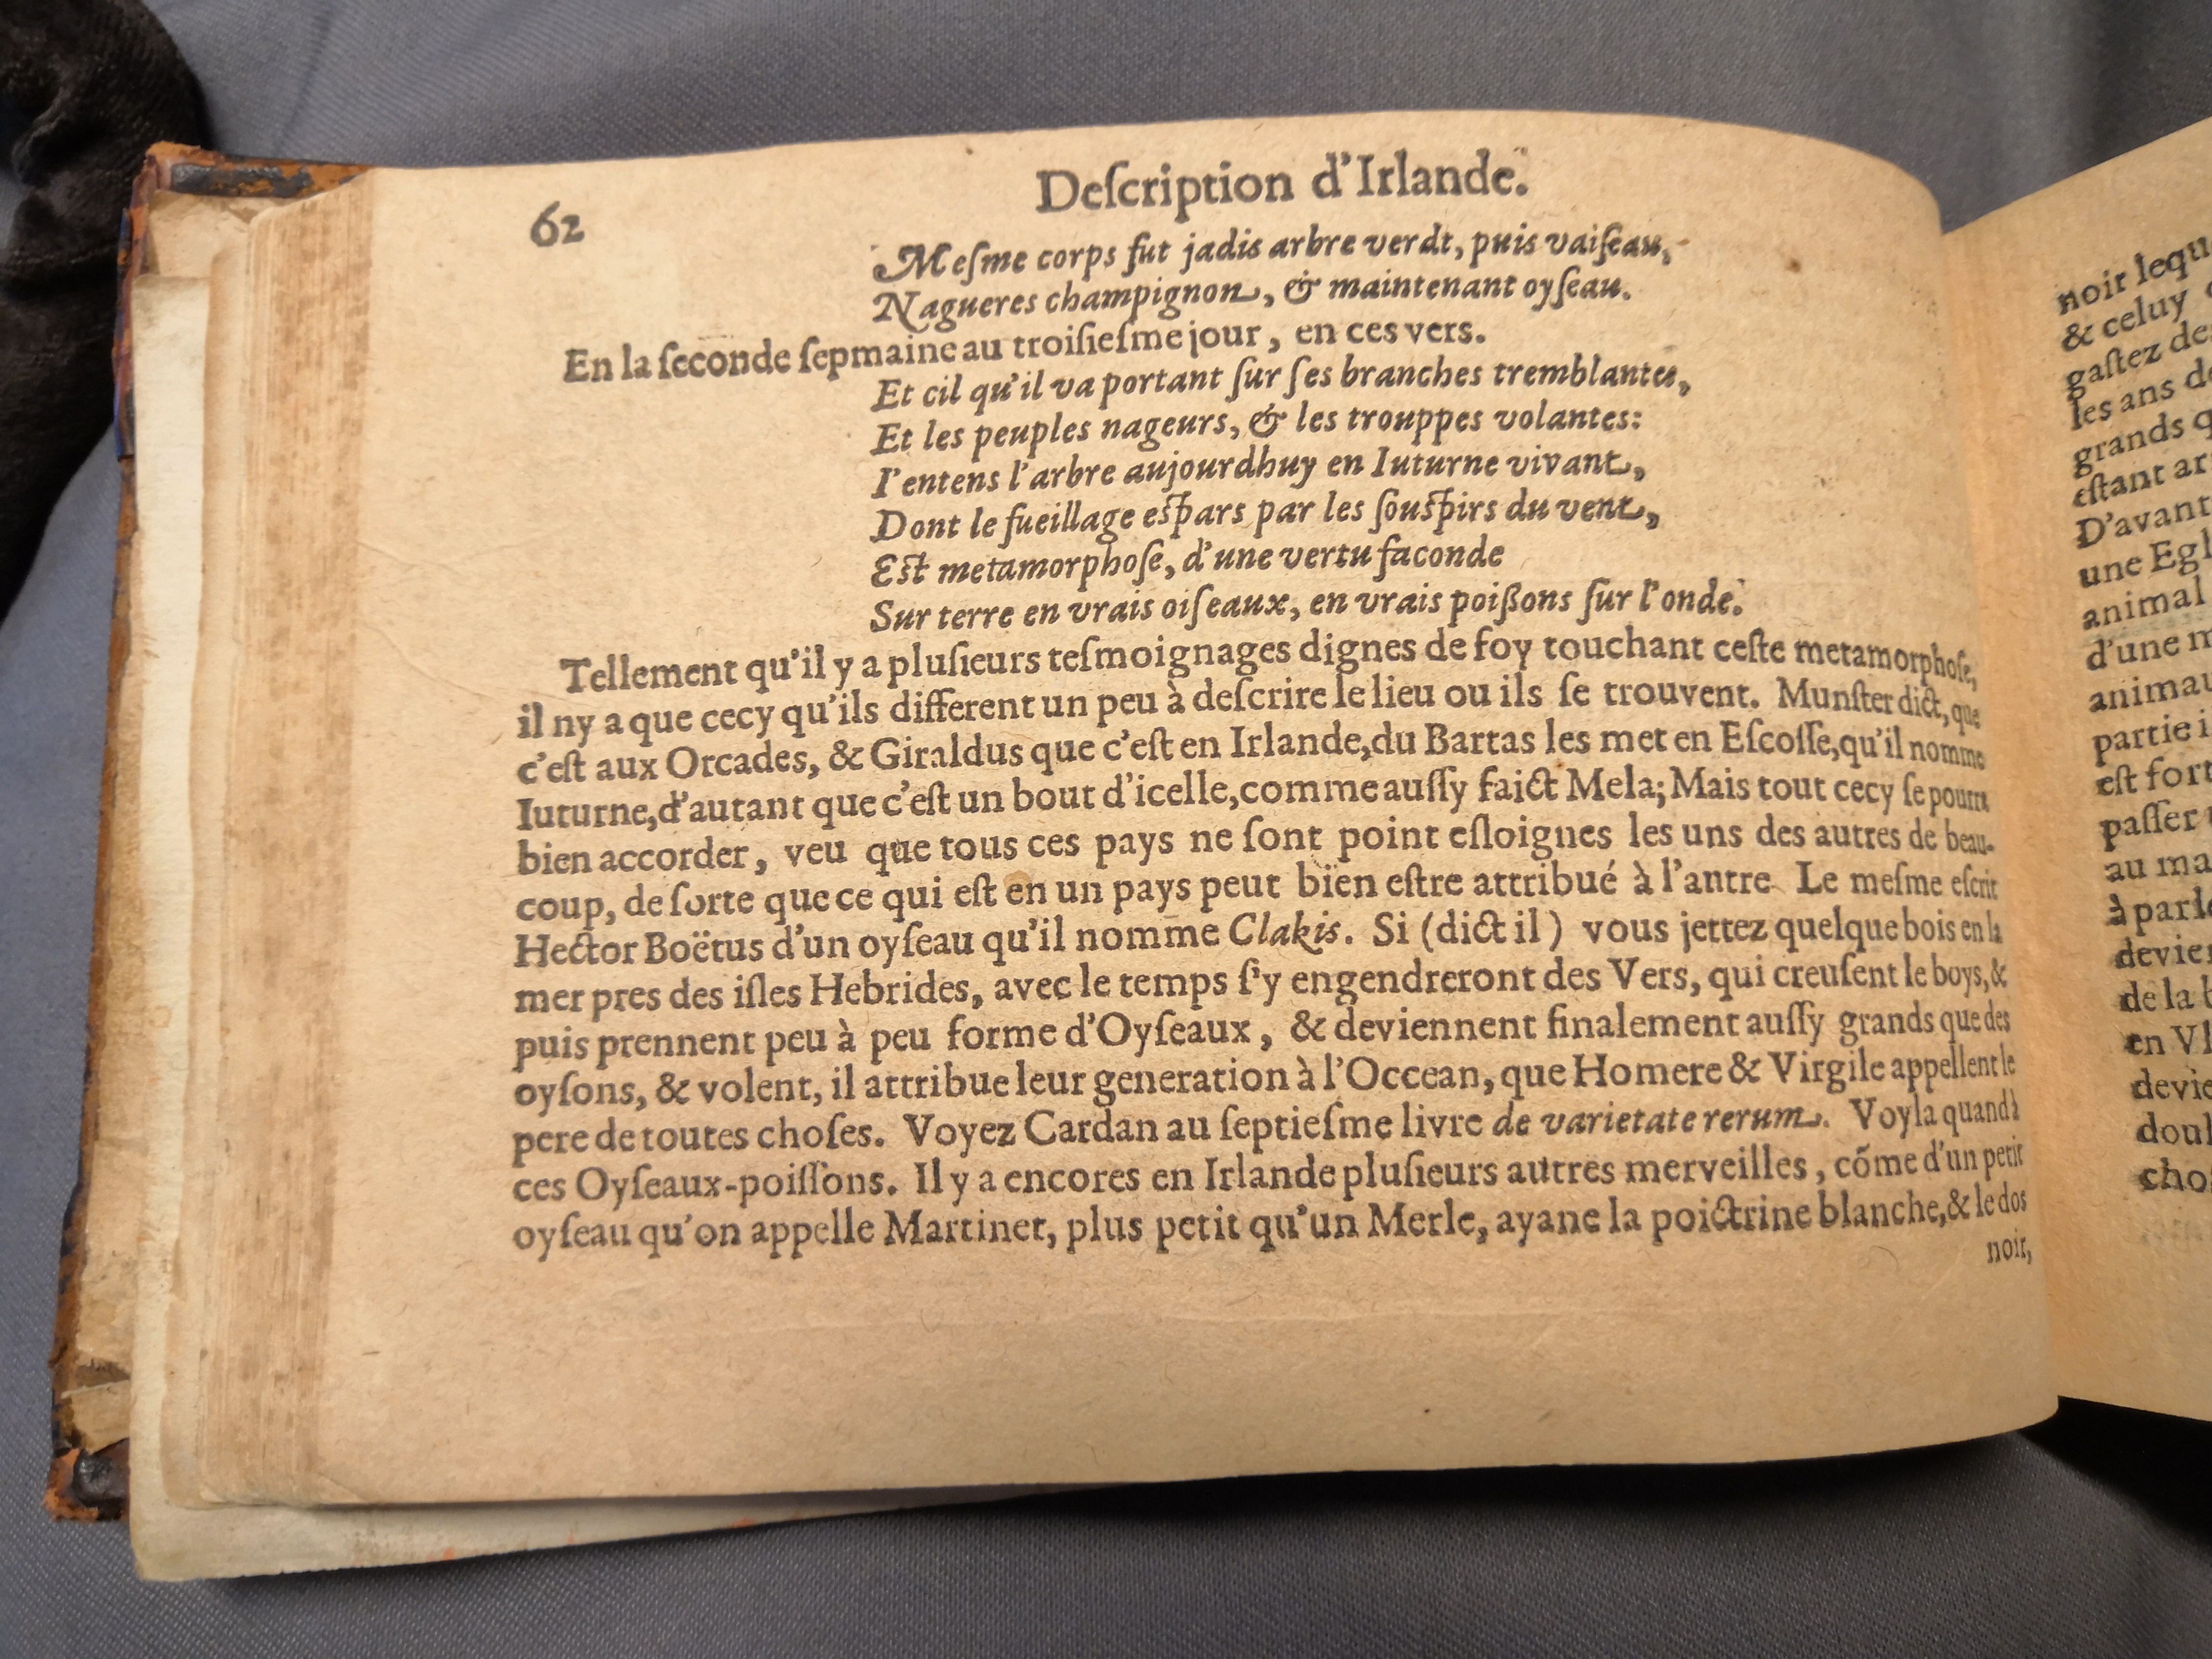 62
Deſcription d'Irlande.
Meſme corps fut jadis arbre verdt, puis vaiſeau,
Nagueres champignon, & maintenant oyſeau.
En la ſeconde ſepmaine au troiſieſme jour, en ces vers.
Et cil qu'il va portant ſur ſes branches tremblantes,
Et les peuples nageurs, & les trouppes volantes:
I'entens l'arbre aujourdhuy en Iuturne vivant,
Dont le fueillage eſpars par les ſouſpirs du vent,
Eſt metamorphoſe, d'une vertu faconde
Sur terre en vrais oiſeaux, en vrais poißons ſur l'onde.
Tellement qu'il y a pluſieurs teſmoignages dignes de foy touchant ceſte metamorphoſe,
il ny a que cecy qu'ils different un peu à deſcrire le lieu ou ils ſe trouvent. Munſter dict, que
c'eſt aux Orcades, & Giraldus que c'eſt en Irlande, du Bartas les met en Eſcoſſe, qu'il nomme
Iuturne, d'autant que c'eſt un bout d'icelle, comme auſſy faict Mela; Mais tout cecy ſe pourra
bien accorder, veu que tous ces pays ne ſont point eſloignes les uns des autres de beau-
coup, de ſorte que ce qui eſt en un pays peut bien eſtre attribué à l'antre Le meſme eſcrit
Hector Boëtus d'un oyſeau qu'il nomme Clakis. Si (dict il) vous jettez quelque bois en la
mer pres des iſles Hebrides, avec le temps ſ'y engendreront des Vers, qui creuſent le boys, &
puis prennent peu à peu forme d'Oyſeaux, & deviennent finalement auſſy grands que des
oyſons, & volent, il attribue leur generation à l'Occean, que Homere & Virgile appellent le
pere de toutes choſes. Voyez Cardan au ſeptieſme livre de varietate rerum. Voyla quand à
ces Oyſeaux-poiſſons. Il y a encores en Irlande pluſieurs autres merveilles, cõme d'un petit
oyſeau qu'on appelle Martinet, plus petit qu'un Merle, ayane la poictrine blanche, & le dos
noir,
noir
& celuy
gaſtez
les ans
grands
eſtant
D'avant
une
animal
d'une
partie
eſt fort
paſſer
au
de la
en